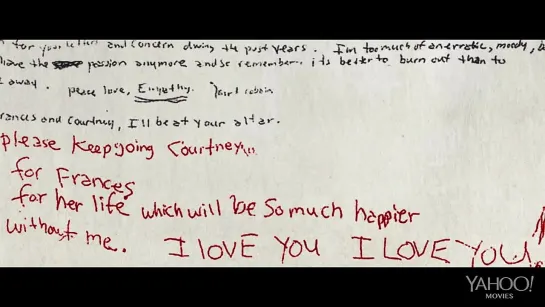 for your letters and concern during the past years. I'm too much of an erratic, moody,
have the passion anymore and so remember. its better to burn out than to
away. peace love, Empathy. Kurt Cobain
rances and Courtney, I'll be at your altar.
please keep going Courtney
for Frances
for her life which will be so much happier
without me. I LOVE YOU I LOVE YOU!
YAHOO!
MOVIES